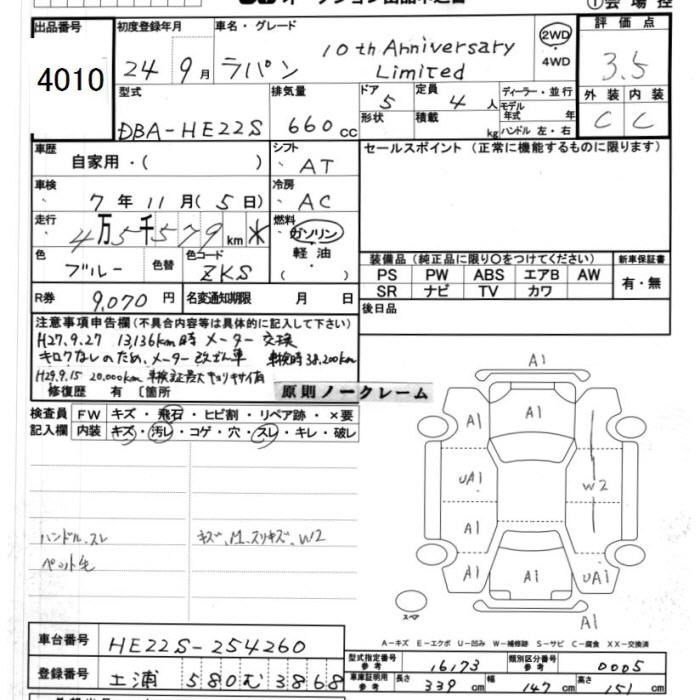 出品番号
4010
初度登録年月
24年9月
車名・グレード
ラパン
10th Anniversary
Limited
2WD
4WD
評価点
3.5
外装 内装
C C
型式
DBA-HE22S
排気量
660cc
ドア
5
形状
定員
4人
積載
kg
ディーラー・並行
モデル
年式 年
ハンドル 左・右
車歴
自家用・( )
シフト
AT
セールスポイント(正常に機能するものに限ります)
車検
7年11月(5日)
冷房
AC
走行
4万5千579km
燃料
ガソリン
軽油
( )
色
ブルー
色替
色コード
ZKS
装備品(純正品に限り〇をつけてください)
新車保証書
PS PW ABS エアB AW
SR ナビ TV カワ
有・無
R券
9,070円
名変通知期限 月 日
後日品
注意事項申告欄(不具合内容等は具体的に記入して下さい)
H27.9.27 13,136km時 メーター交換
キロクなしのため、メーター改ざん車 車検時38,200km
H29.9.15 20,000km
修復歴 有 〔箇所
原則ノークレーム
検査員
記入欄
FW キズ・飛石・ヒビ割・リペア跡・×要
内装 キズ・汚レ・コゲ・穴・スレ・キレ・破レ
ハンドル、スレ
ペット毛
キズ、M、スリキズ、W2
A1
A1
A1
A1
UA1
W2
A1
A1
A1
A1
UA1
A1
スペア
A-キズ E-エクボ U-凹み W-補修跡 S-サビ C-腐食 XX-交換済
車台番号
HE22S-254260
登録番号
土浦 580 む 3868
型式指定番号
参考
16173
類別区分番号
参考
0005
車庫証明用
参考
長さ
339cm
幅
147cm
高さ
151cm